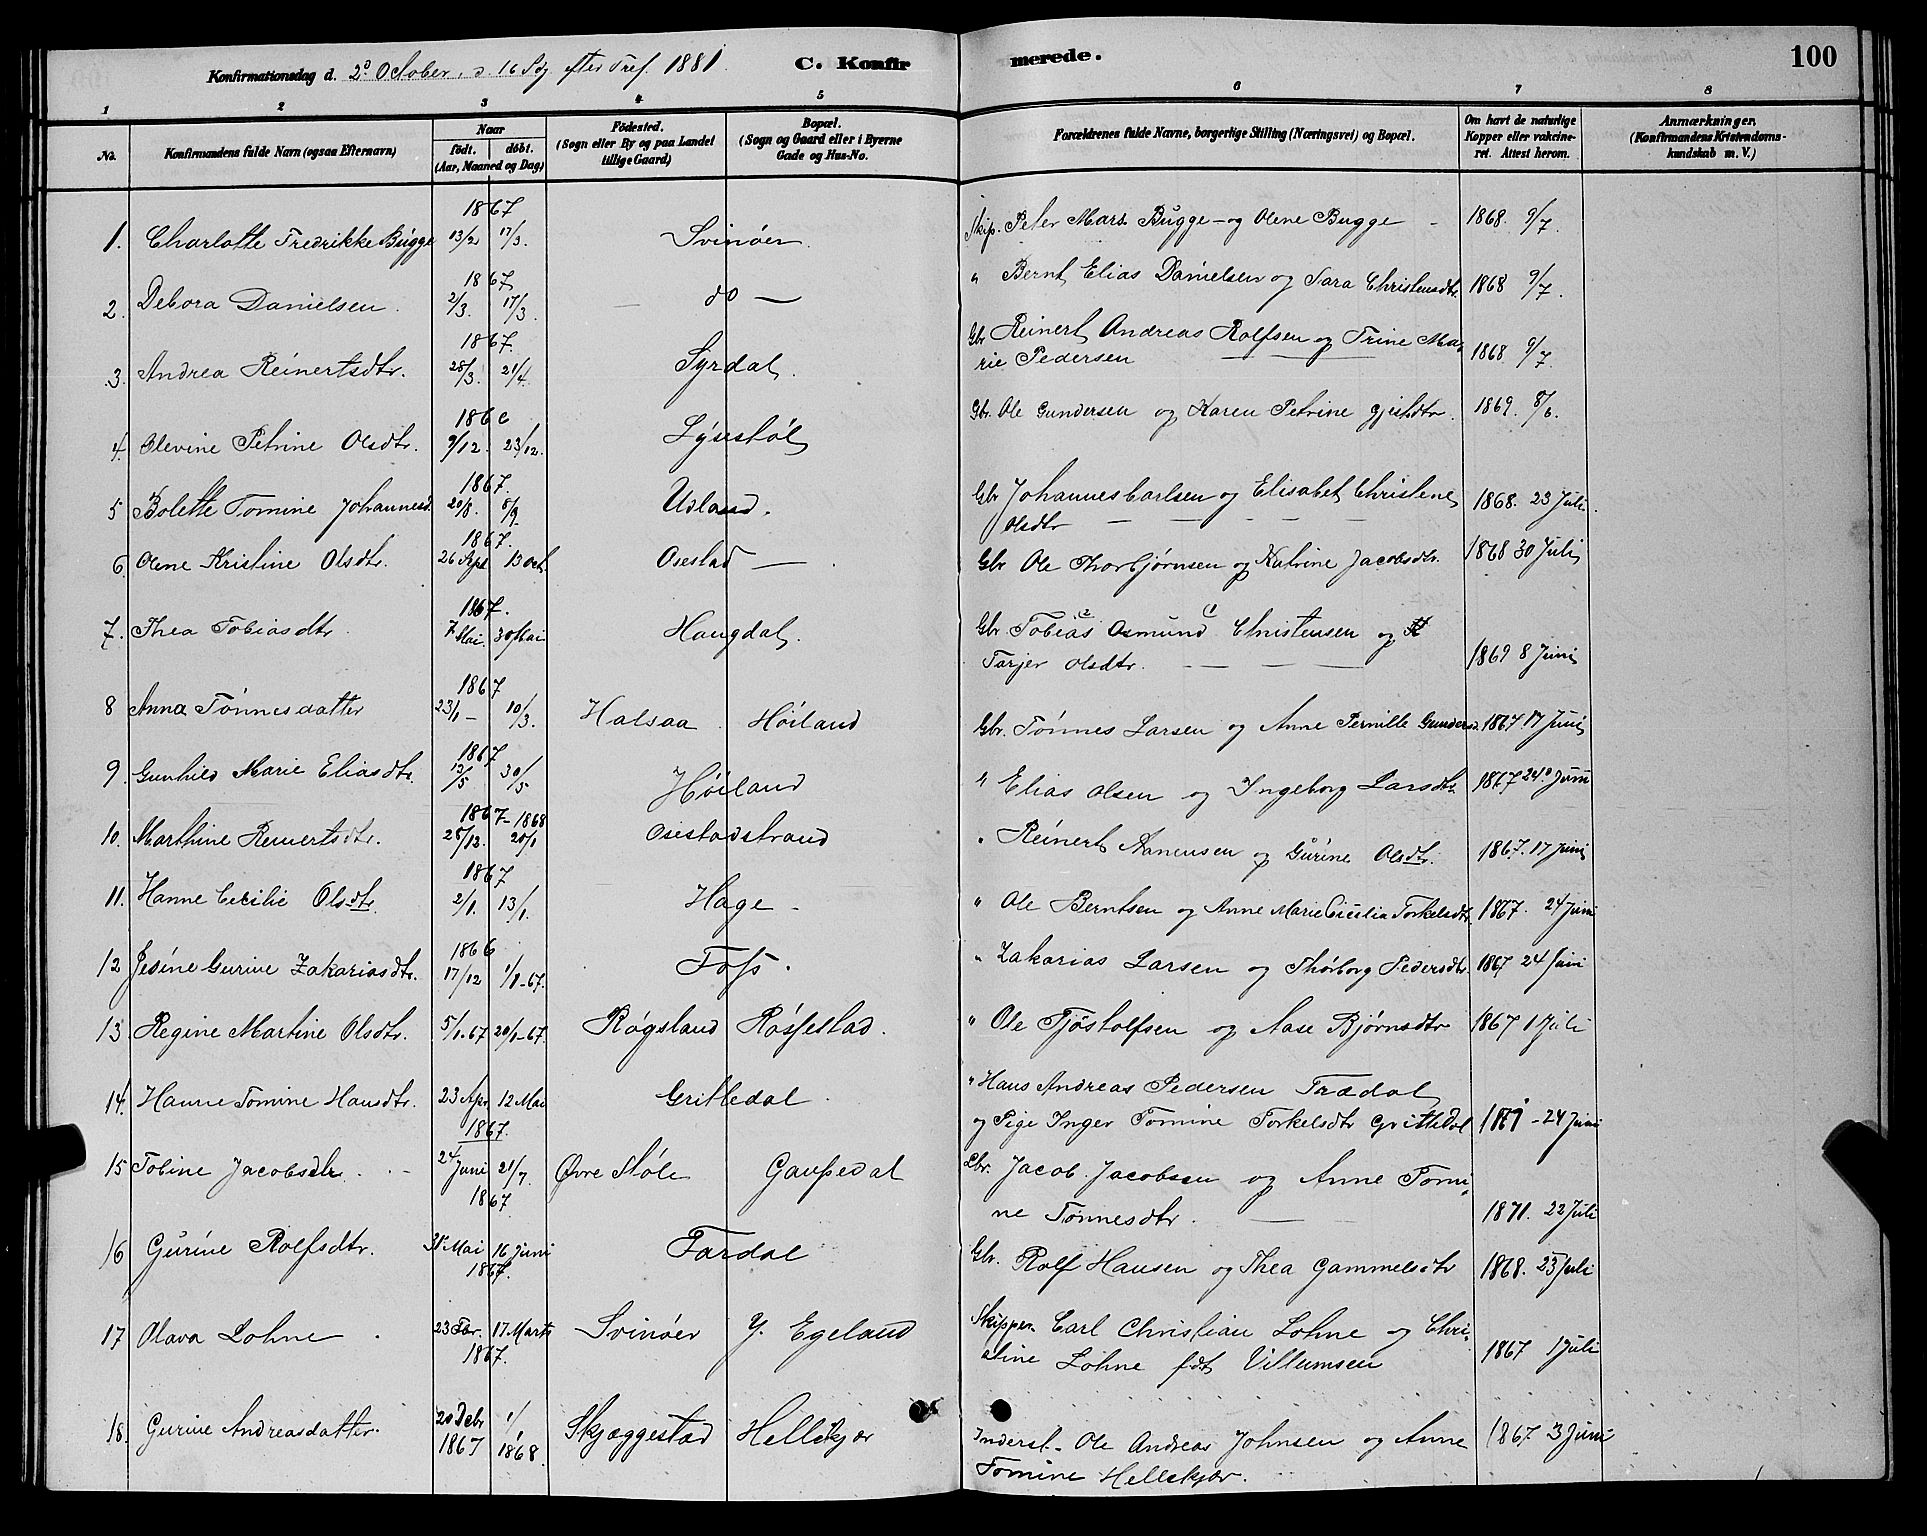 Konfirmationsdag d. 2° October, 16 Sdg efter Tref. 1881. C. Konfirmerede. 100
1 2 3 4 5 6 7 8
No. Konfirmandens fulde Navn (ogsaa Efternavn) Naar født. døbt. (Aar, Maaned og Dag) Födested. (Sogn eller By og paa Landet tillige Gaard) Bopæl. (Sogn og Gaard eller i Byerne Gade og Hus-No. Forældrenes fulde Navne, borgerlige Stilling (Næringsvei) og Bopæl. Om havt de naturlige Kopper eller vaccineret. Attest herom. Anmærkninger. (Konfirmandens Kristendomskundskab m. V.)
1. Charlotte Fredrikke Bugge 1867 13/2 17/3. Svinöer. Skip. Peter Mars. Bugge - og Olene Bugge - 1868 9/7.
2. Debora Danielsen. 1867 2/3. 17/3. — do — " Bernt Elias Danielsen og Sara Christensdtr. 1868 9/7.
3. Andrea Reinertsdtr. 1867. 28/3. 21/4. Syrdal. Gbr Reinert Andreas Rolfsen og Trine Ma-
rie Pedersen 1868 9/7.
4. Olevine Petrine Olsdtr. 1866 9/12. 23/12. Lýsestöl Gbr. Ole Gundersen og Karen Petrine Gjertsdtr. 1869. 8/6.
5 Bolette Tomine Johannesd. 1867. 20/8. 8/9. Udland. Gbr Johannes Carlsen og Elisabet Christene
Olsdtr — — — — 1868. 23 Juli.
6. Olene Kristine Olsdtr. 1867. 26 Spt 13 Oct Osestad — Gbr Ole Thorbjørnsen og Katrine Jacobsdtr. 1868 30 Juli
7. Thea Tobiasdtr. 1867. 7 Mai. 30 Mai Haugdal. Gbr. Tobias Osmund Christensen og
Tarjer Olsdtr. — — — 1869 8 Juni
8 Anna Tönnesdatter 1867 23/1 - 10/3. Halsaa. Höiland Gbr. Tönnes Larsen og Anne Pernille Gundersd. 1867. 17 Juni
9. Gunhild Marie Eliasdtr. 1867 12/5 30/5 Höiland " Elias Olsen og Ingeborg Larsdtr. 1867 24 Juni
10. Marthine Reinertsdtr. 1867-1868 28/12. 20/1 Osestadstrand " Reinert Aanensen og Gurine Olsdtr. 1867. 17 Juni
11. Hanne Cecilie Olsdtr. 1867 2/1. 13/1. Hage - " Ole Berntsen og Anne Marie Cicilia Torkelsdtr. 1867. 24 Juni
12 Jesine Gurine Zakariasdtr. 1866 17/12 1/1-67. Foss. " Zakarias Larsen og Thörborg Pedersdtr. 1867 24 Juni
13 Regine Martine Olsdtr. 5/1.67 20/1-67. Rögsland Rössestad. " Ole Tjöstolfsen og Aase Bjørnsdtr 1867 1 Juli
14. Hanne Tomine Hansdtr. 23 Apr 12 Mai 1867. Grittedal. " Hans Andreas Pedersen Trædal
og Pige Inger Tomine Torkelsdtr Grittedal - 24 Juni
15 Tobine Jacobsdtr. 24 Juni 21/7. 1867 Øvre Stöle Gaupedal Lbr. Jacob Jacobsen og Anne Tomi-
ne Tönnesdtr. — 1871. 22 Juli
16 Gurine Rolfsdtr. 31 Mai 16 Juni 1867. Fardal Gbr. Rolf Hansen og Thea Gammelsdtr 1868. 23 Juli
17 Olava Lohne. 23 Far. 17 Marts 1867. Svinöer Y. Egeland Skipper. Carl Christian Lohne og Chri-
stine Lohne fdt Villumsen 1867 1 Juli
18. Gurine Andreasdatter. 20 Debr 1867 1/1 1868. Skjæggestad Helleskjær Inderst. Ole Andreas Johnsen og Anne
Tomine Helleskjær. 1867 3 Juni